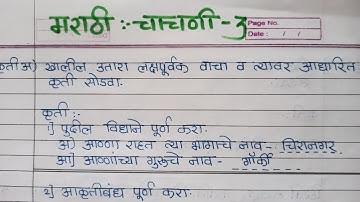 मराठी :- चाचणी - 3
Page No.
Date : / /
कृती अ) खालील उतारा लक्षपूर्वक वाचा व त्यावर आधारित
कृती सोडवा.
कृती :-
१) पुढील विधाने पूर्ण करा.
अ) अण्णा राहत त्या भागाचे नाव - चिरानगर.
आ) अण्णांच्या गुरुचे नाव - गॉर्की
२) आकृतीबंध पूर्ण करा.